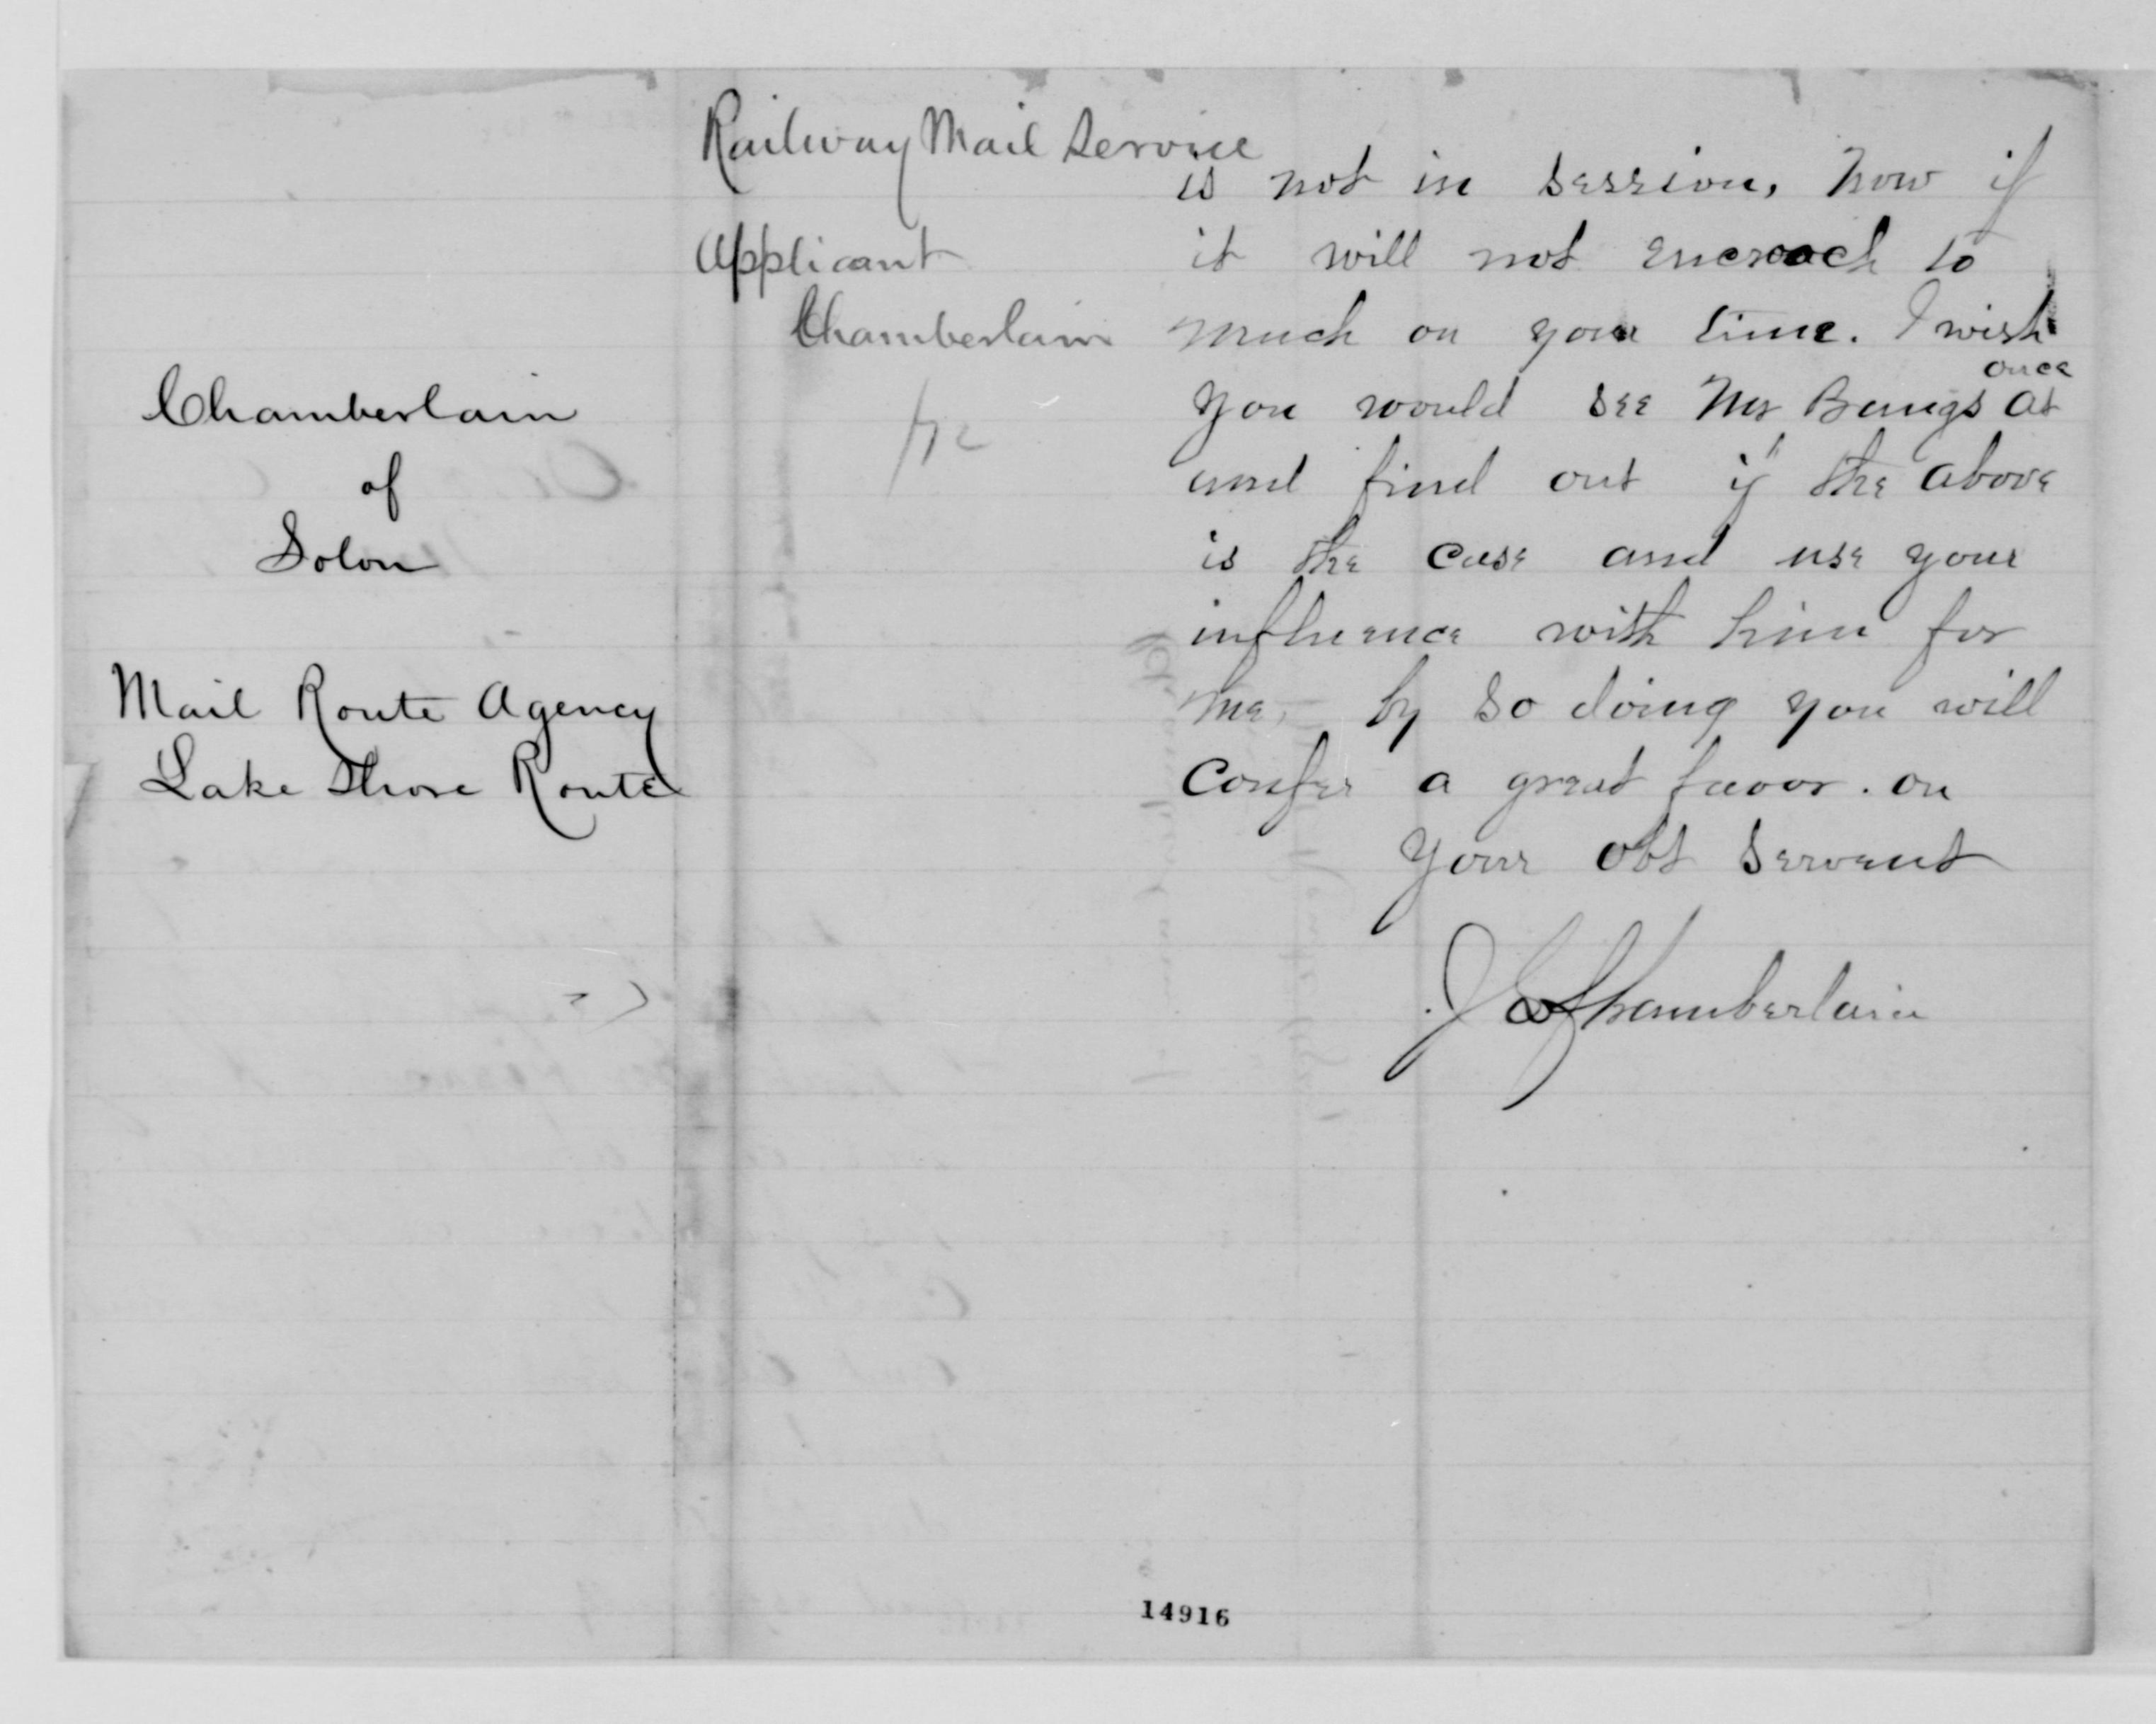 Chamberlain
of
Solon
Mail Route Agency
Lake Shore Route
Railway Mail Service
Applicant
Chamberlain
is not in session, Now if
it will not encroach to
much on your time. I wish
you would see Mr Bangs at once
and find out if the above
is the case and use your
influence with him for
me, by so doing you will
confer a great favor. on
Your obt servent
J Chamberlain
14916